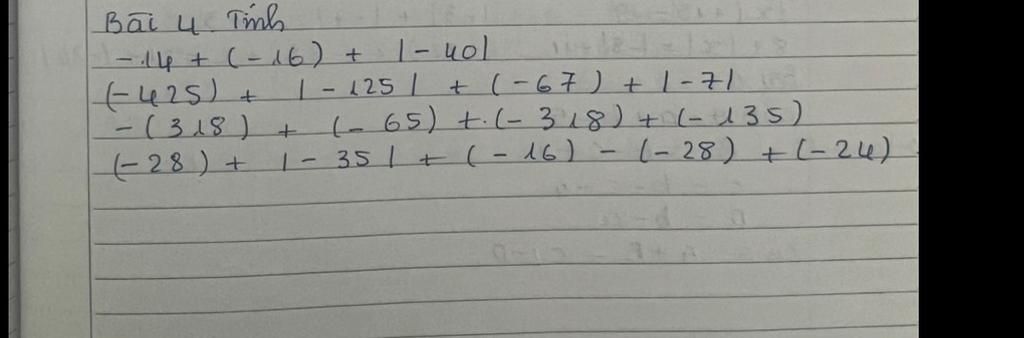 Bài 4. Tính
-14 + (-16) + |-40|
(-425) + |-125| + (-67) + |-7|
-(318) + (-65) + (-318) + (-135)
(-28) + |-35| + (-16) - (-28) + (-24)